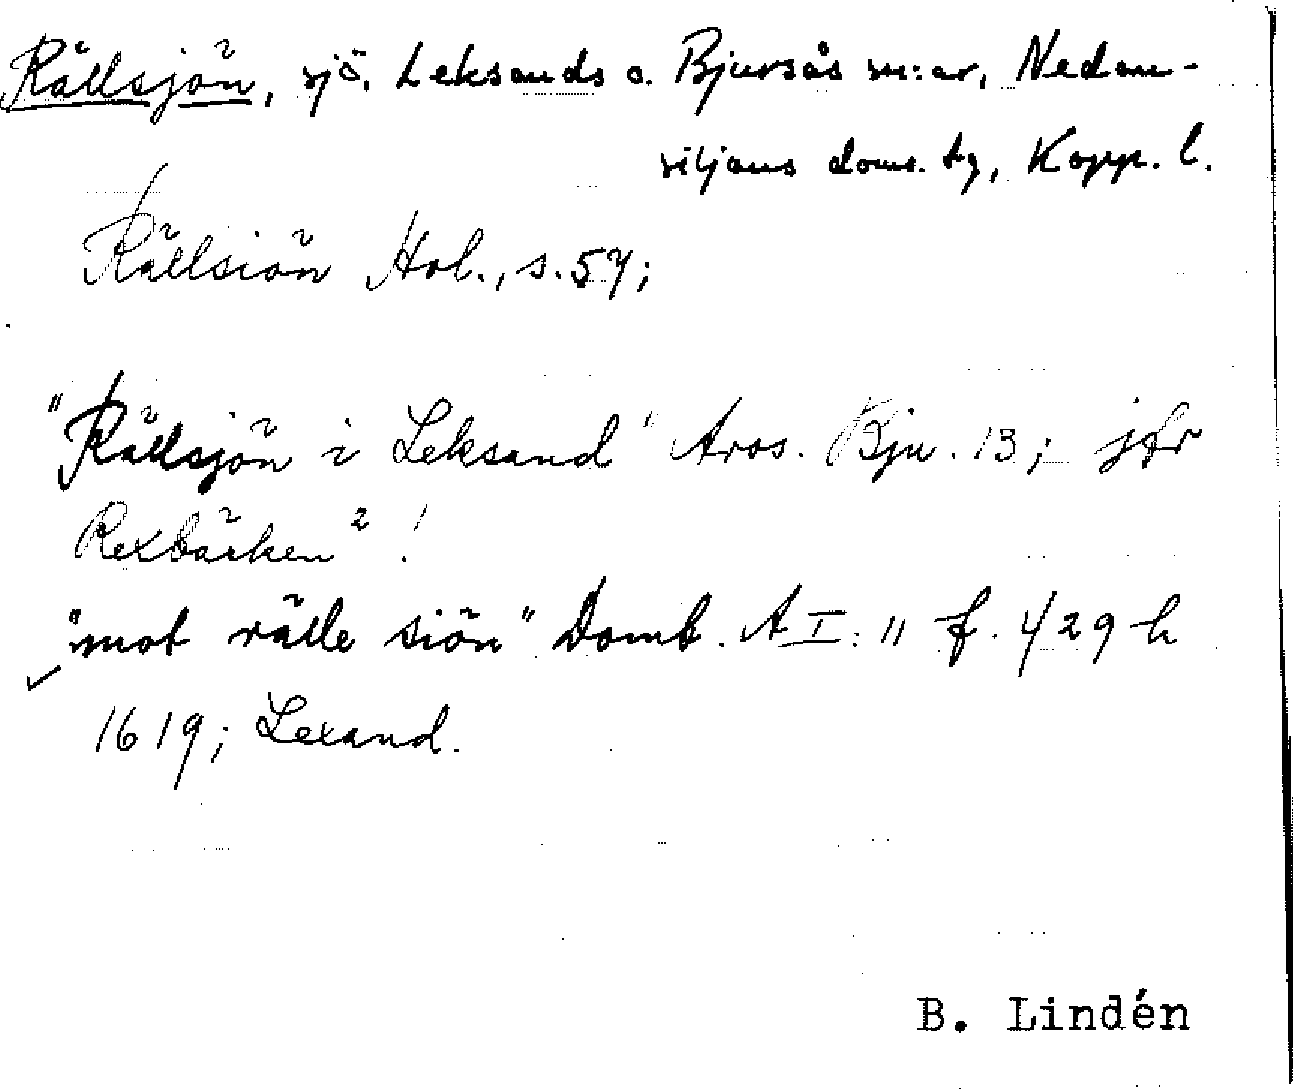 Rällsjön, sjö. Leksands o. Bjursås sn:ar, Nedan-
siljans doms. tg, Kopp. l.
Rällsiön Hol., s. 57;
"Rällsjön i Leksand" Aros. Bju. 13; jfr
Rexbäcken 2!
"mot rälle siön" Domb. A I: 11 f. 429 h
1619; Lexand.
B. Lindén